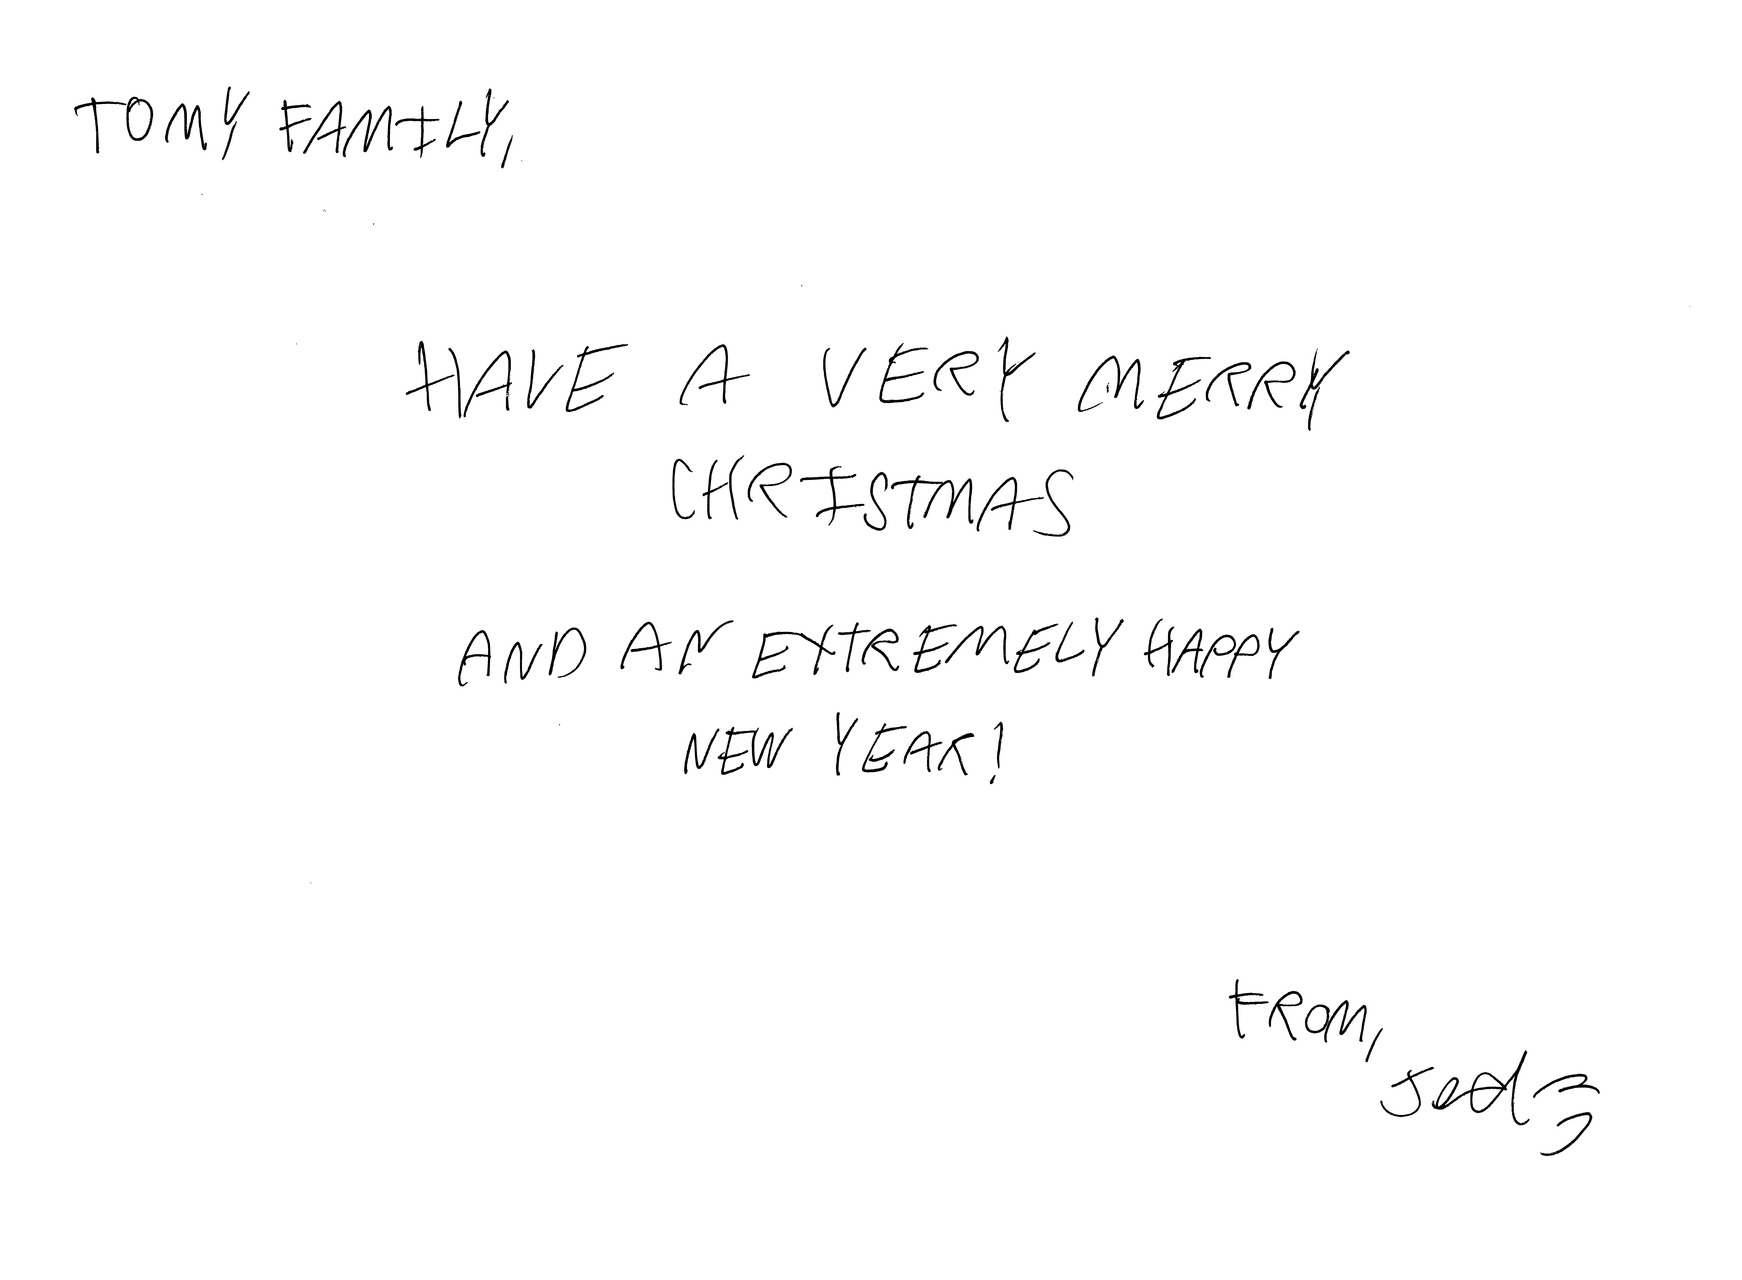 TO MY FAMILY,
HAVE A VERY MERRY
CHRISTMAS
AND AN EXTREMELY HAPPY
NEW YEAR!
FROM,
Jed